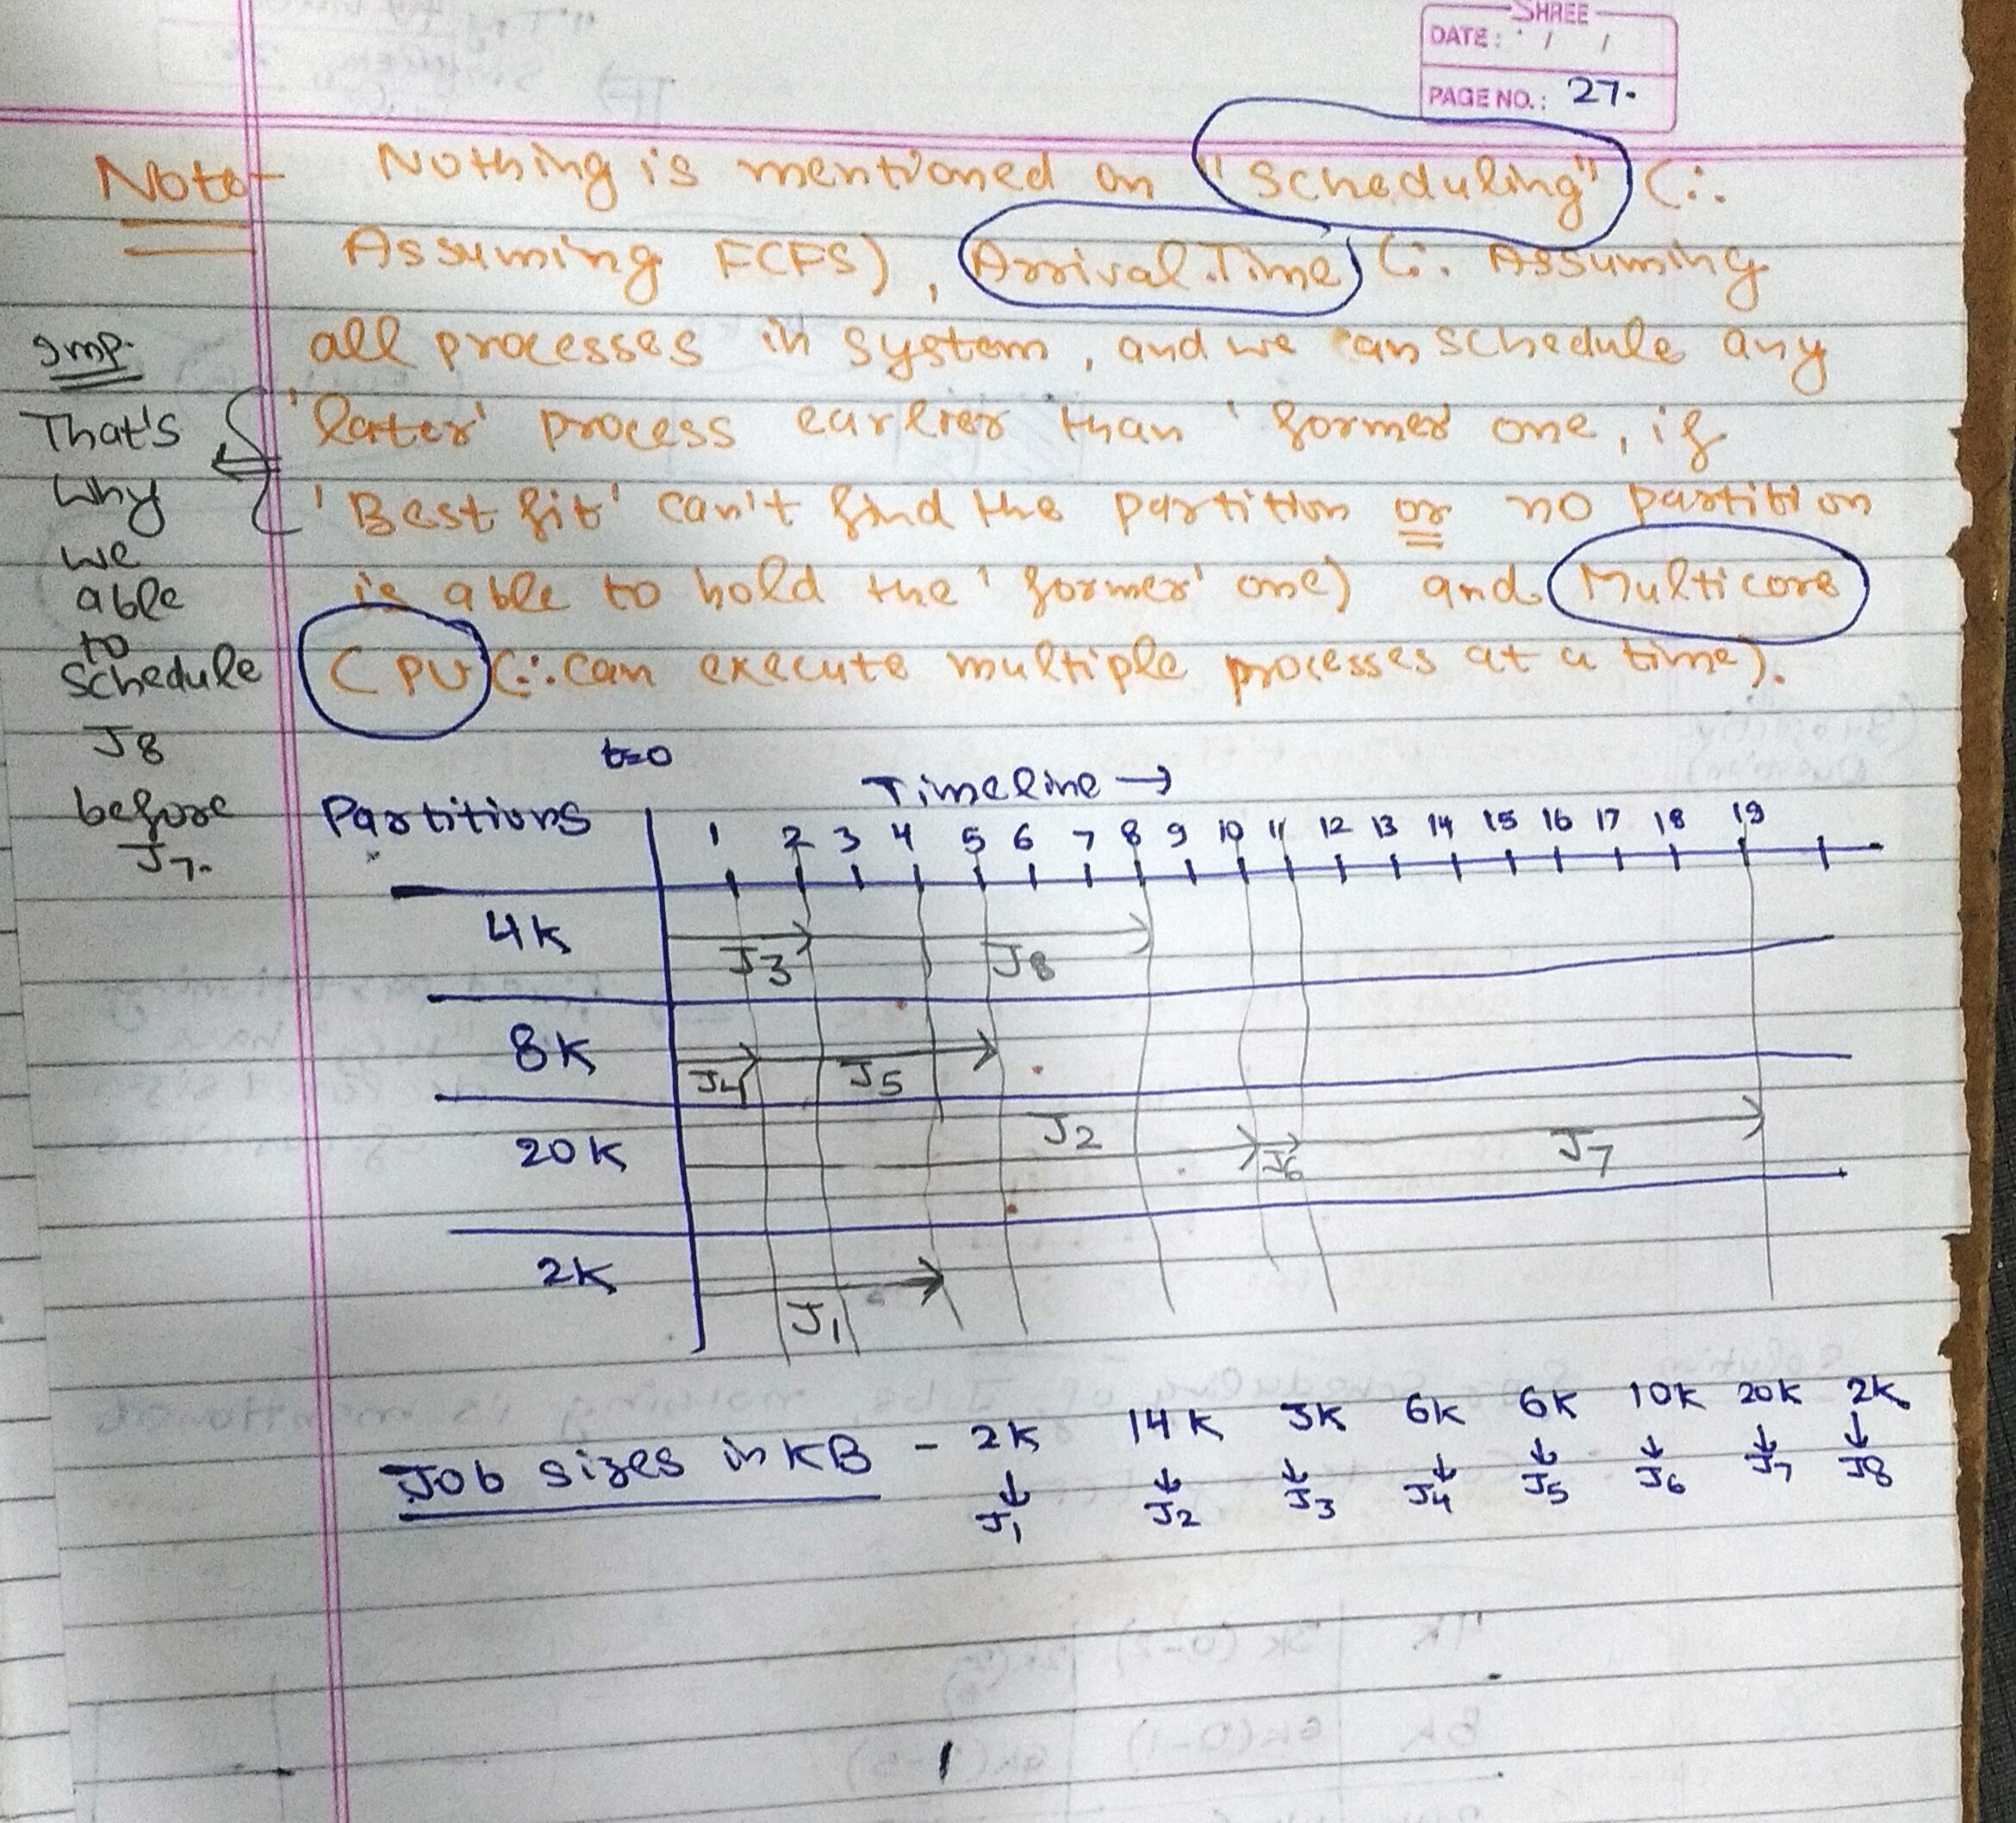 SHREE
DATE: / /
PAGE NO.: 27.
Note- Nothing is mentioned on "Scheduling" (∴
Assuming FCFS), Arrival Time (∴ Assuming
all processes in system, and we can schedule any
'later' process earlier than 'former one, if
'Best fit' can't find the partition or no partition
is able to hold the 'former' one) and Multicore
CPU (∴ can execute multiple processes at a time).
Imp.
That's
why
we
able
to
schedule
J8
before
J7.
t=0
Timeline →
Partitions 1 2 3 4 5 6 7 8 9 10 11 12 13 14 15 16 17 18 19
4K J3 J8
8K J4 J5
20K J2 J6 J7
2K J1
Job sizes in KB - 2K 14K 3K 6K 6K 10K 20K 2K
↓ ↓ ↓ ↓ ↓ ↓ ↓ ↓
J1 J2 J3 J4 J5 J6 J7 J8